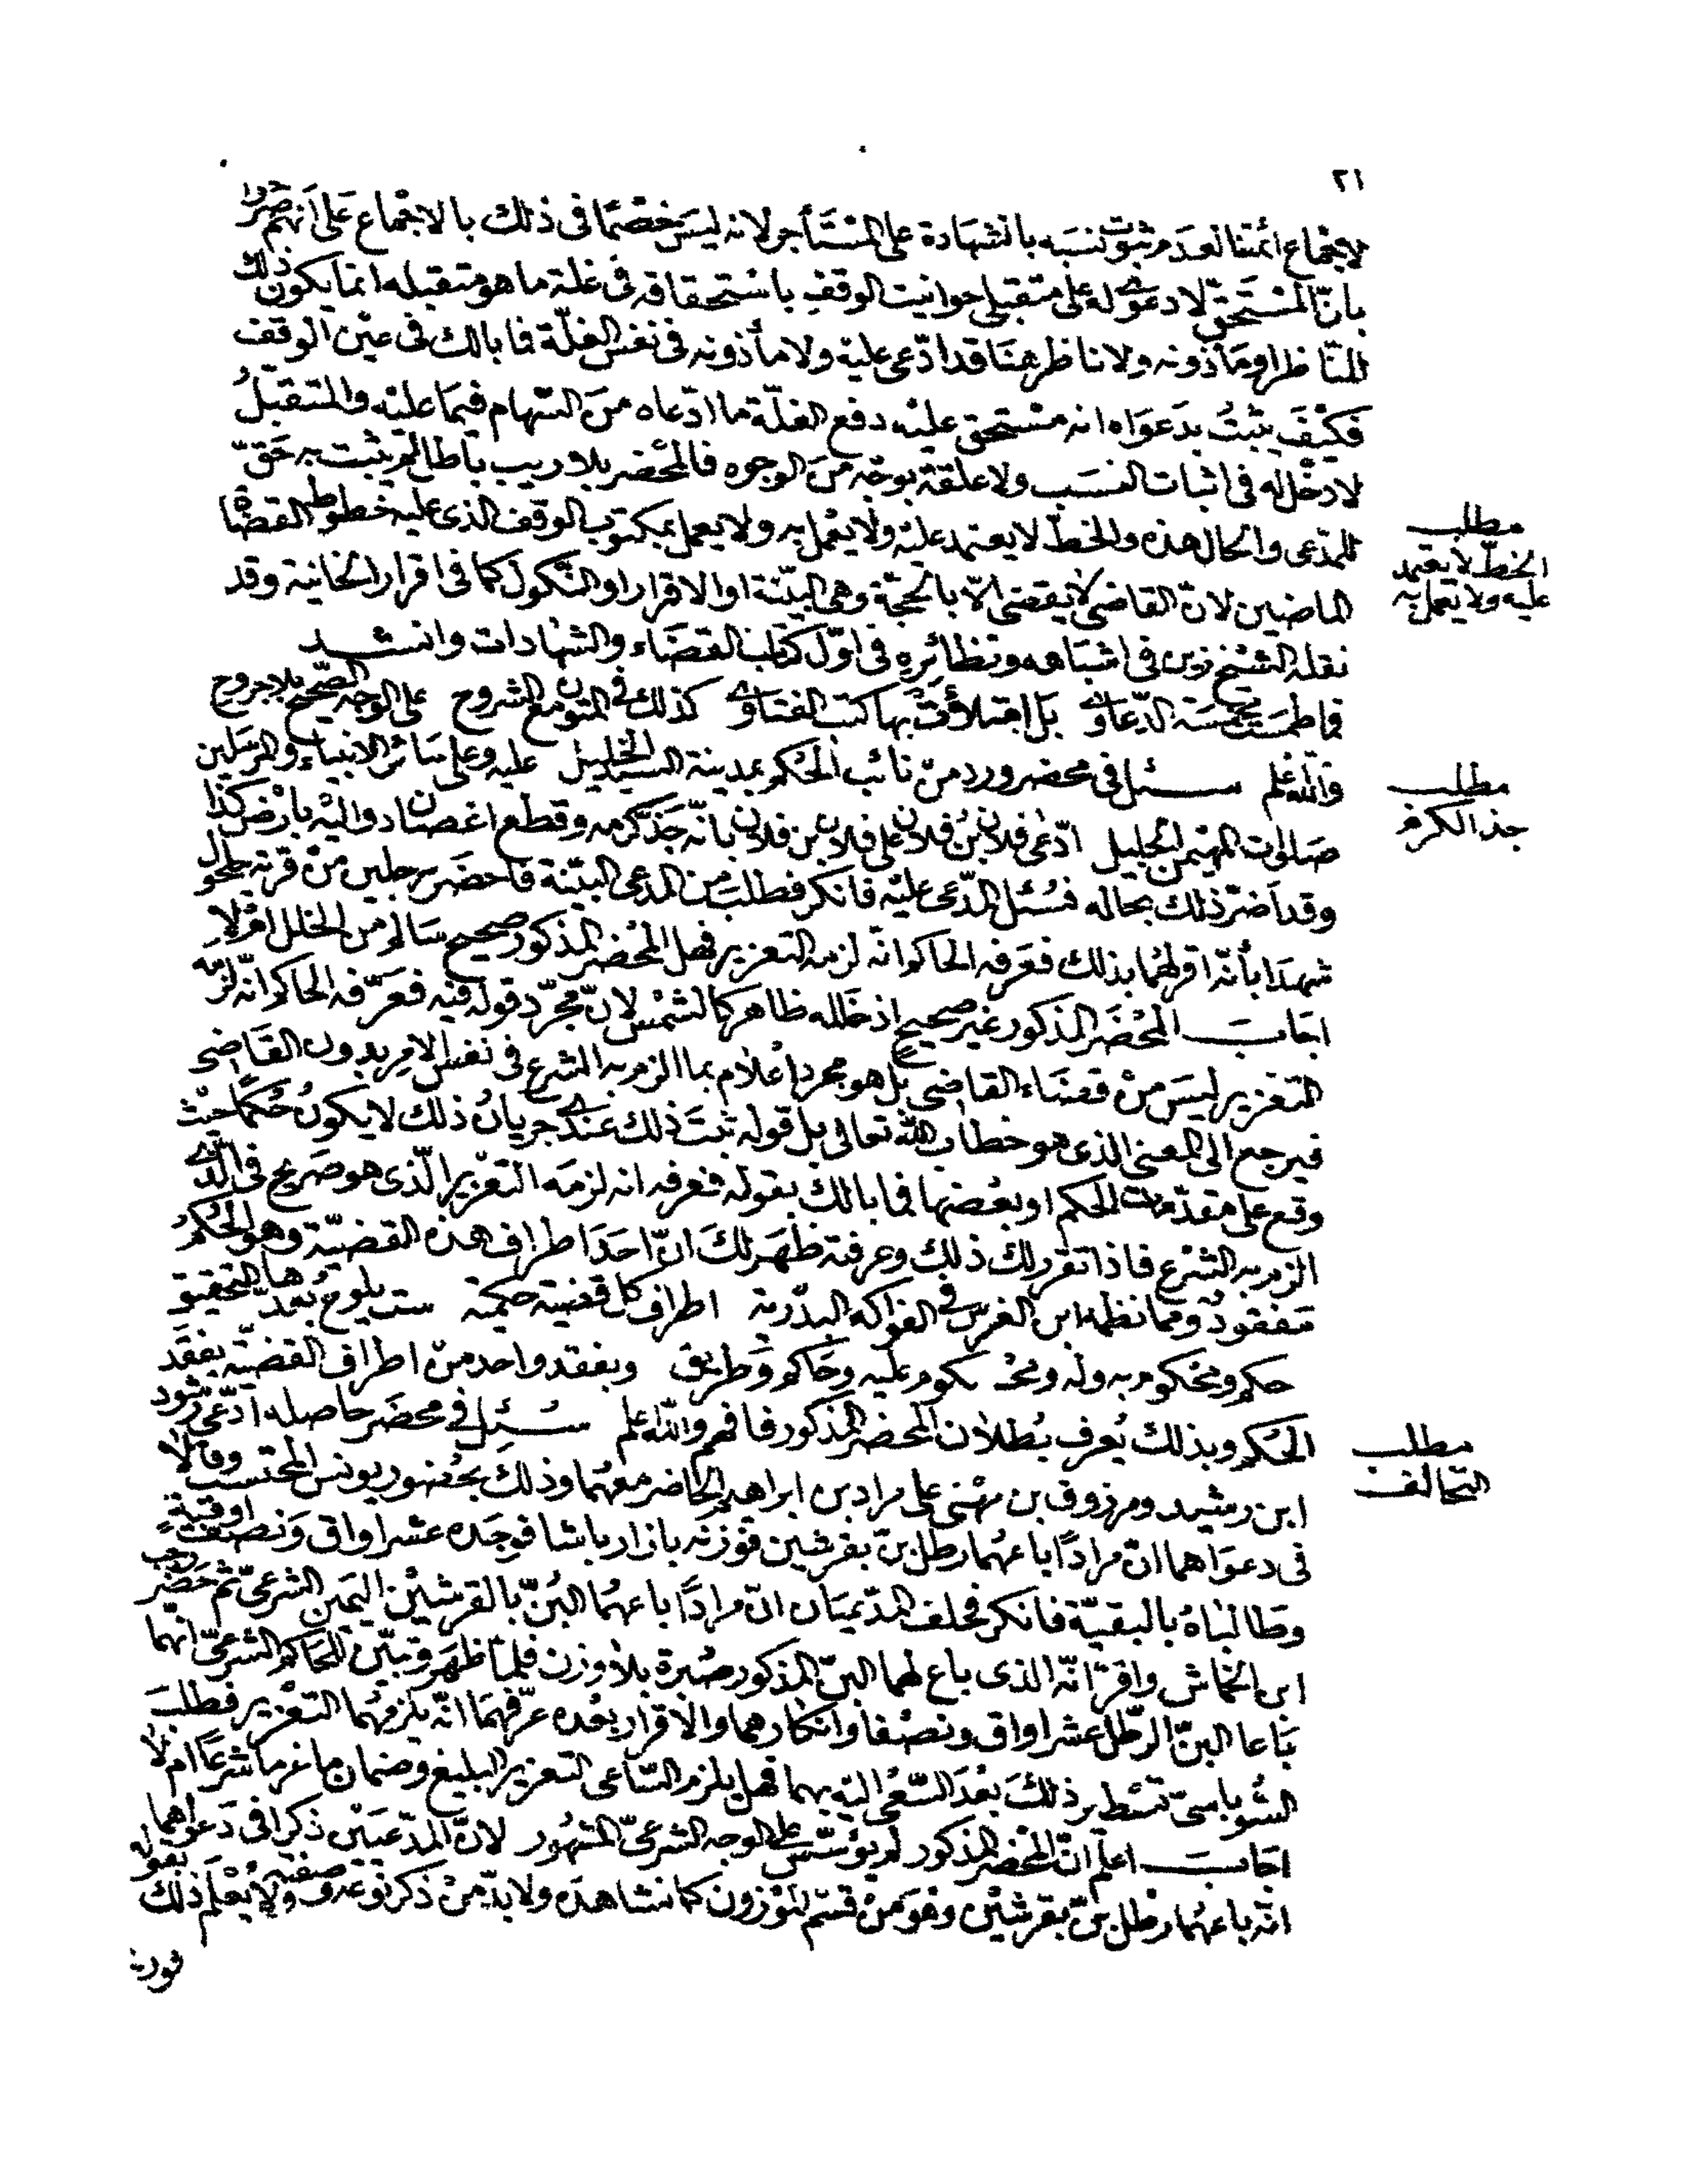 ٢١
لاجماع ائمتنا لعدم ثبوت نسبه بالشهادة على المستأجر لانه ليس خصما فى ذلك بالاجماع على انهم صرحوا
بانّ المستحقّ لا دعوى له على متقبلى حوانيت الوقف باستحقاقه فى غلة ما هو متقبله انما يكون ذلك
للنّاظر او مأذونه ولا ناظر هنا قد ادّعى عليه ولا مأذونه فى نفس الغلّة فما بالك فى عين الوقف
فكيف يثبتُ بدعواه انه مستحق عليه دفع الغلّة ما ادّعاه من السهام فيما عليه والمتقبّلُ
لا دخل له فى اثبات النسب ولا علقة بوجه من الوجوه فالمحضر بلا ريب باطل لم يثبت به حقّ
للمدّعى والحال هذه والخطّ لا يعتمد عليه ولا يعمل به ولا يعمل بمكتوب الوقف الذى عليه خطوط القضاة
الماضين لانّ القاضى لا يقضى الّا بالحجّة وهى البيّنة او الاقرار او النّكول كما فى اقرار الخانية وقد
نقله الشيخ زين فى اشباهه ونظائره فى اوّل كتاب القضاء والشهادات وانشد
فما طمست محمسة الدّعاوى بل امتلأت بها كتب الفتاوى كذلك فى المتون مع الشروح على الوجه الصّحيح بلا جروح
والله اعلم سئل فى محضر ورد من نائب الحكم بمدينة السيد الخليل عليه وعلى سائر الانبياء والمرسلين
صلوات المهيمن الجليل ادّعى فلان بنُ فلان على فلان بن فلان بانّه جذّ كرمه وقطع اغصان دواليه بارض كذا
وقد اضرّ ذلك بحاله فسُئل المدّعى عليه فانكر فطلب من المدعى البيّنة فاحضر رجلين من قرية حلحول
شهدا بأنّه اقر لهما بذلك فعرفه الحاكم انّه لزمه التعزير فهل المحضر المذكور صحيح سالم من الخلل ام لا
اجاب المحضر المذكور غير صحيح اذ خلله ظاهر كالشمس لانّ مجرّد قوله فيه فعرّفه الحاكم انّه لزمه
التعزير ليس من قضاء القاضى بل هو مجرد اعلام بما الزم به الشرع فى نفس الامر بدون القاضى
فيرجع الى المعنى الذى هو خطاب الله تعالى بل قوله ثبت ذلك عندى جريان ذلك لا يكون حكما حيث
وقع على مقدّمات الحكم او بعضها فما بالك بقوله فعرفه انه لزمه التعزير الّذى هو صريح فى الّذى
الزم به الشرع فاذا تقرر لك ذلك وعرفته ظهر لك انّ احد اطراف هذه القضيّة وهو الحكمُ
مفقودٌ ومما نظمه ابن الغرس فى الفواكه البدرية اطراف كل قضية حكمية ست يلوح بعدّها التحقيق
حكم ومحكوم به وله ومحكوم عليه وحاكم وطريق وبفقد واحد من اطراف القضيّة يفقد
الحكم وبذلك يُعرف بُطلان المحضر المذكور فافهم والله اعلم سُئل فى محضر حاصله ادّعى رشود
ابن رشيد ومرزوق بن مهنى على مراد بن ابراهيم الحاضر معهما وذلك بحضور يونس المحتسب وقالا
فى دعواهما انّ مرادًا باعهما رطل بنّ بقرشين فوزنّه بازار باشا فوجده عشر اواق ونصف اوقية
وطالباه بالبقيّة فانكر فحلف المدّعيان انّ مرادًا باعهما البُنّ بالقرشين اليمين الشرعىّ ثم حضر رجب
ابن الخماش واقرّ انّه الذى باع لهما البنّ المذكور صُبرة بلا وزن فلما ظهر وتبيّن للحاكم الشرعىّ انهما
باعا البنّ الرّطل عشر اواق ونصفا وانكارهما والاقرار بعده عرّفهما انّه يلزمهما التعزير فطلب
الشوباسىّ تسطير ذلك بعد السّعى اليه بهما فهل يلزم السّاعى التعزير البليغ وضمان ما غرما شرعًا ام لا
اجاب اعلم انّ المحضر المذكور لم يؤسّس على الوجه الشرعىّ المشهور لانّ المدّعيين ذكرا فى دعواهما
انّه باعهما رطل بنّ بقرشين وهو من قسم الموزون كما نشاهده ولا بدّ من ذكر نوعه وصفته ولا يُعلم ذلك بقوله
مطلب
الخطّ لا يعتمد
عليه ولا يعمل به
مطلب
جذ الكرم
مطلب
التحالف